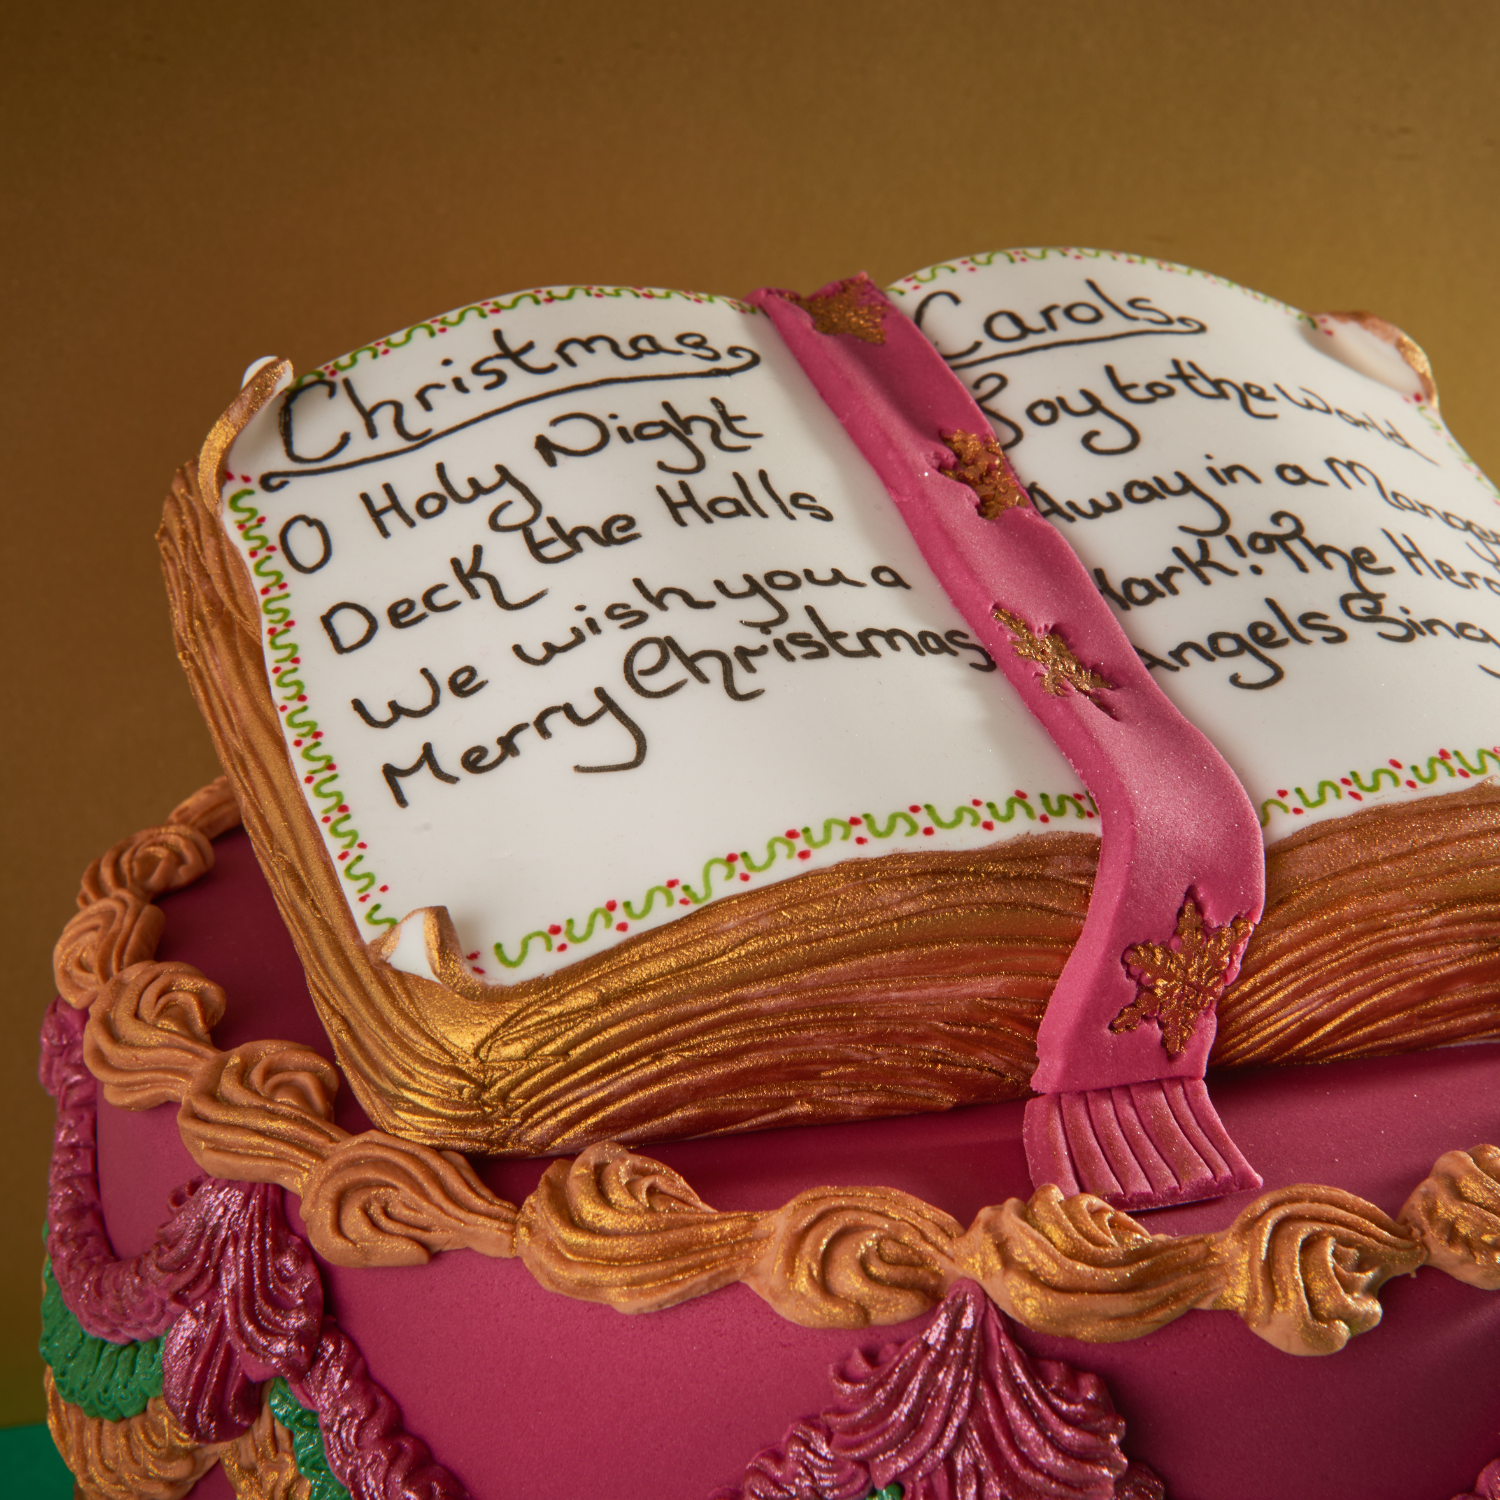 Christmas
O Holy Night
Deck the Halls
We wish you a
Merry Christmas
Carols
Joy to the World
Away in a Manger
Hark! The Hera
Angels Sing